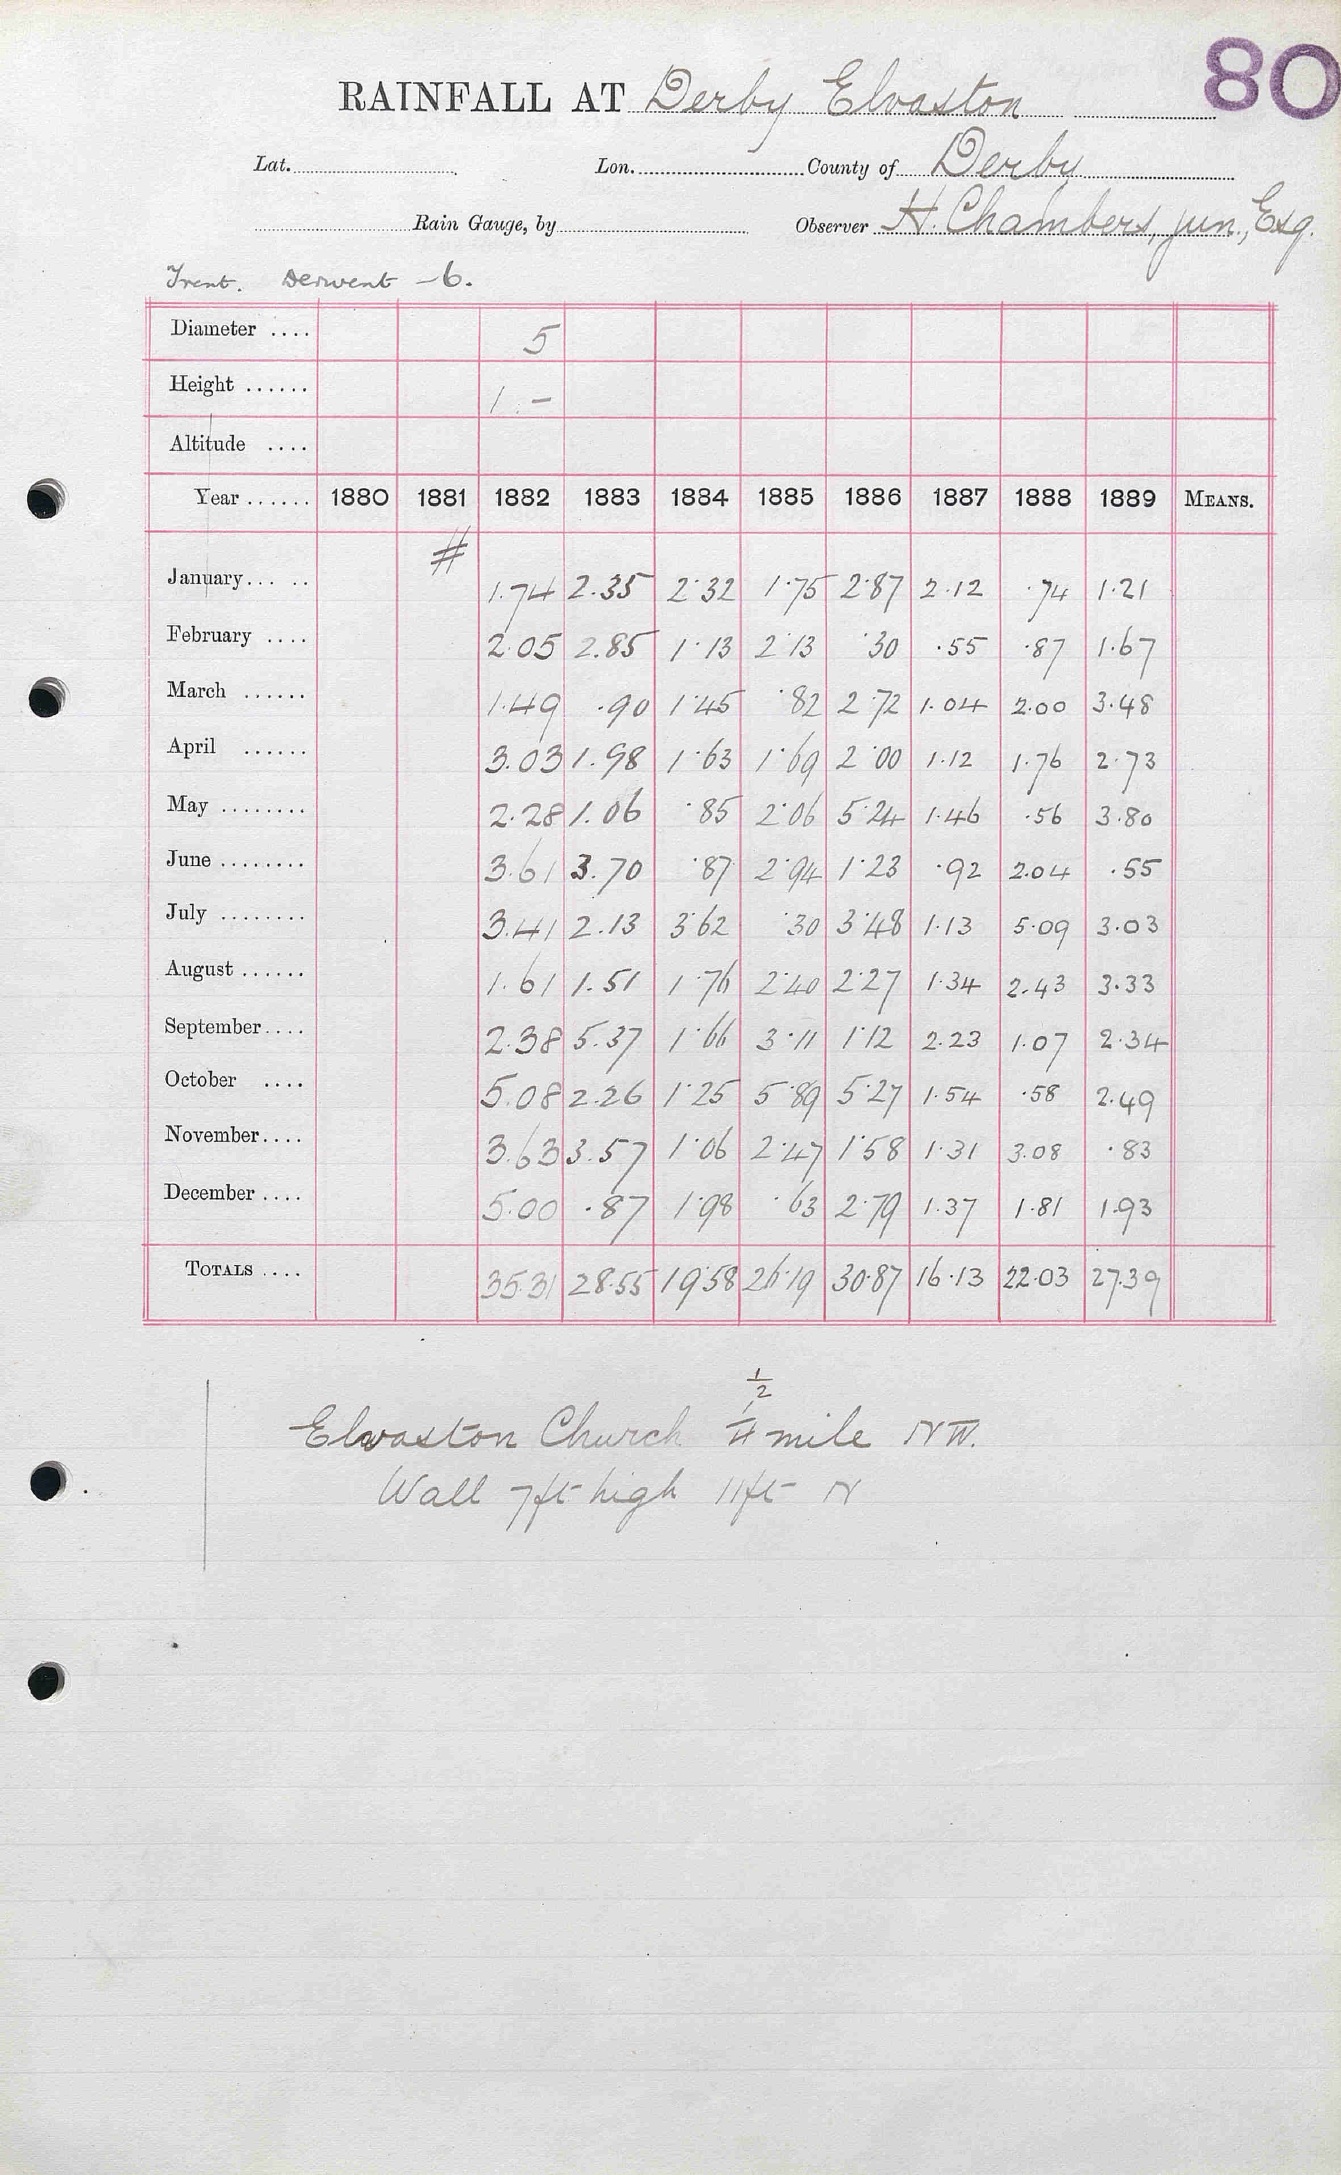 80
RAINFALL AT Derby Elvaston
Lat. Lon. County of Derby
Rain Gauge, by Observer H. Chambers, jun., Esq.
Trent. Derwent -6.
Diameter .... 5
Height ...... 1 . -
Altitude ....
Year ...... 1880 1881 1882 1883 1884 1885 1886 1887 1888 1889 MEANS.
#
January... .. 1.74 2.35 2.32 1.75 2.87 2.12 .74 1.21
February .... 2.05 2.85 1.13 2.13 .30 .55 .87 1.67
March ...... 1.49 .90 1.45 .82 2.72 1.04 2.00 3.48
April ...... 3.03 1.98 1.63 1.69 2.00 1.12 1.76 2.73
May ........ 2.28 1.06 .85 2.06 5.24 1.46 .56 3.80
June ........ 3.61 3.70 .87 2.94 1.23 .92 2.04 .55
July ........ 3.41 2.13 3.62 .30 3.48 1.13 5.09 3.03
August ...... 1.61 1.51 1.76 2.40 2.27 1.34 2.43 3.33
September.... 2.38 5.37 1.66 3.11 1.12 2.23 1.07 2.34
October .... 5.08 2.26 1.25 5.89 5.27 1.54 .58 2.49
November.... 3.63 3.57 1.06 2.47 1.58 1.31 3.08 .83
December .... 5.00 .87 1.98 .63 2.79 1.37 1.81 1.93
TOTALS .... 35.31 28.55 19.58 26.19 30.87 16.13 22.03 27.39
1/2
Elvaston Church 1/4 mile NW.
Wall 7ft high 11ft N